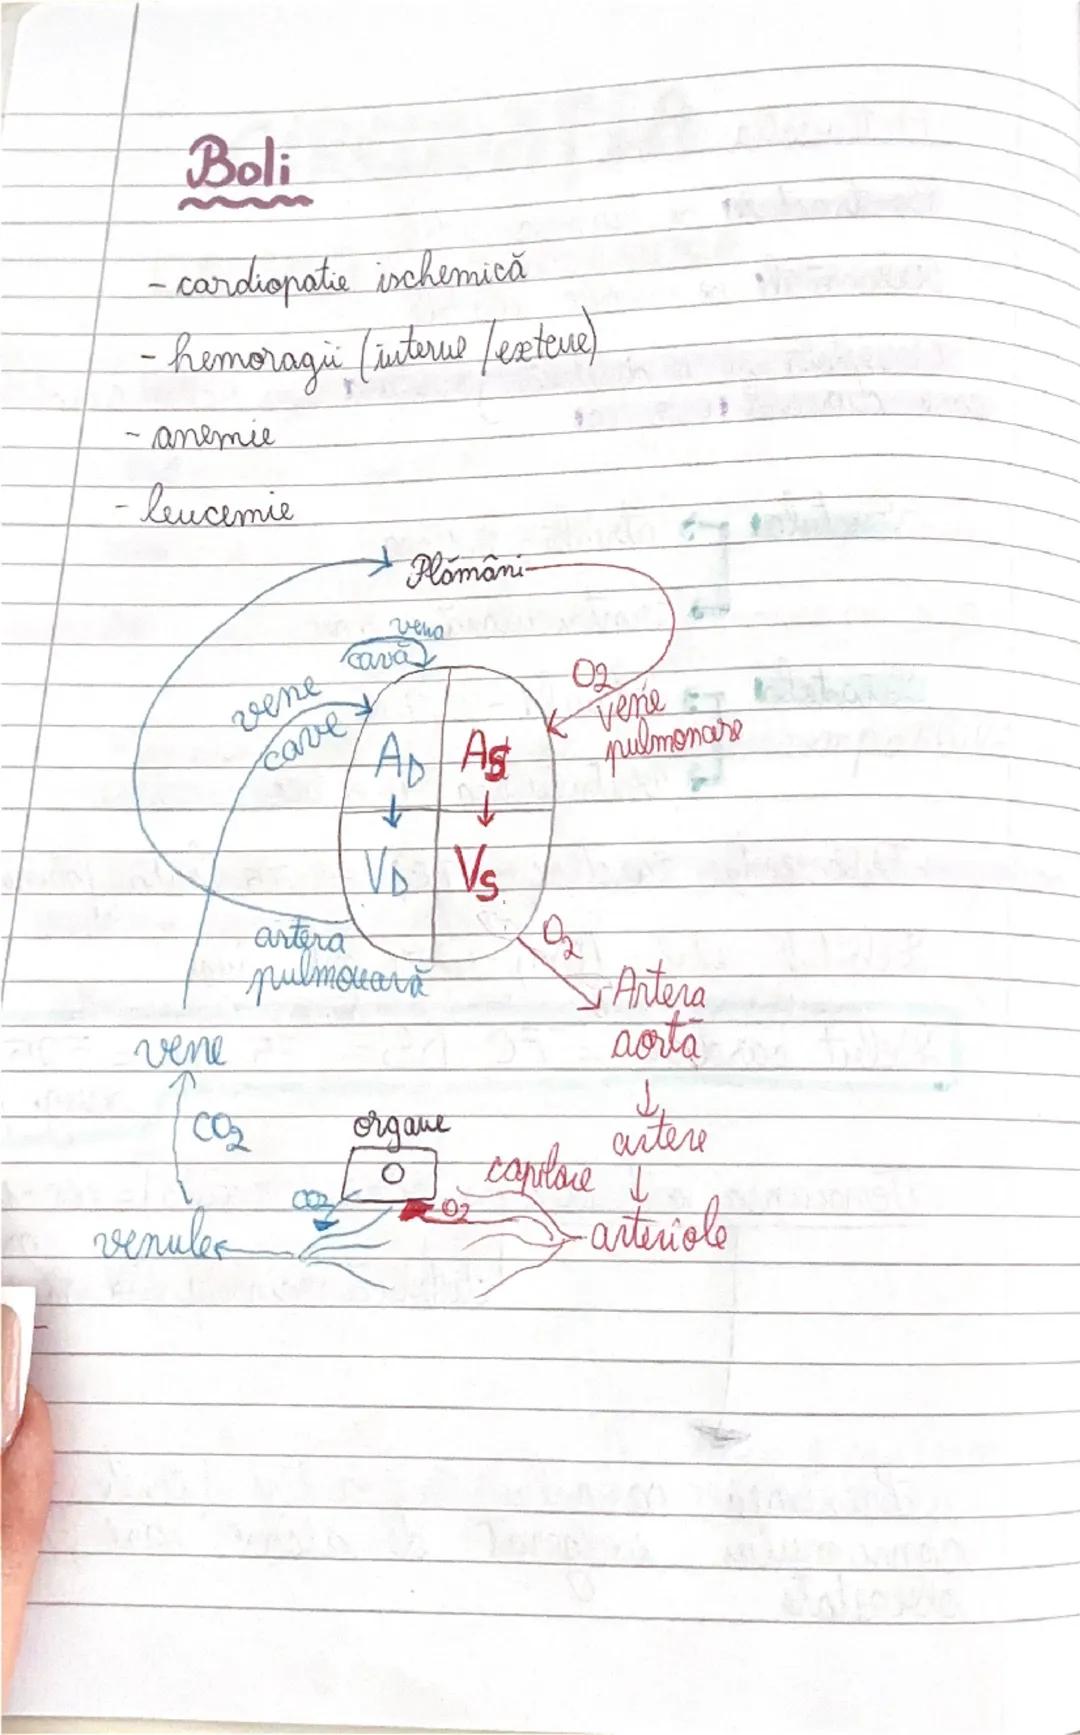 Boli
- cardiopatie ischemică
- hemoragii (interne / extene)
- anemie
- leucemie
Plămâni
vena
cavă
vene
cave
O2
vene
pulmonare
AD
AS
VD
VS
artera
pulmonară
O2
Artera
aortă
vene
CO2
organe
artere
capilare
CO2
O2
venule
arteriole